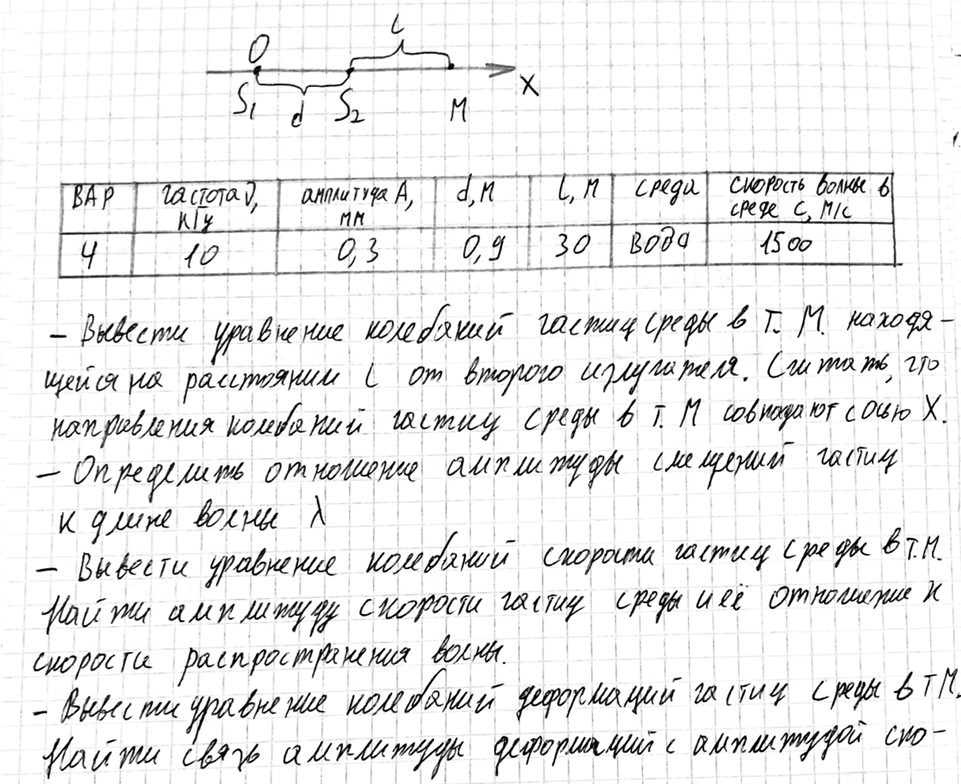 O
l
S₁ d S₂ M X
ВАР частота ν, кГц амплитуда A, мм d, м l, м среда скорость волны в среде C, м/с
4 10 0,3 0,9 30 вода 1500
– Вывести уравнение колебаний частиц среды в т. М. находя-
щейся на расстоянии l от второго излучателя. Считать, что
направления колебаний частиц среды в т. М совпадают с осью X.
– Определить отношение амплитуды смещений частиц
к длине волны λ
– Вывести уравнение колебаний скорости частиц среды в т.М.
Найти амплитуду скорости частиц среды и её отношение к
скорости распространения волны.
– Вывести уравнение колебаний деформаций частиц среды в т М.
Найти связь амплитуды деформаций с амплитудой ско-